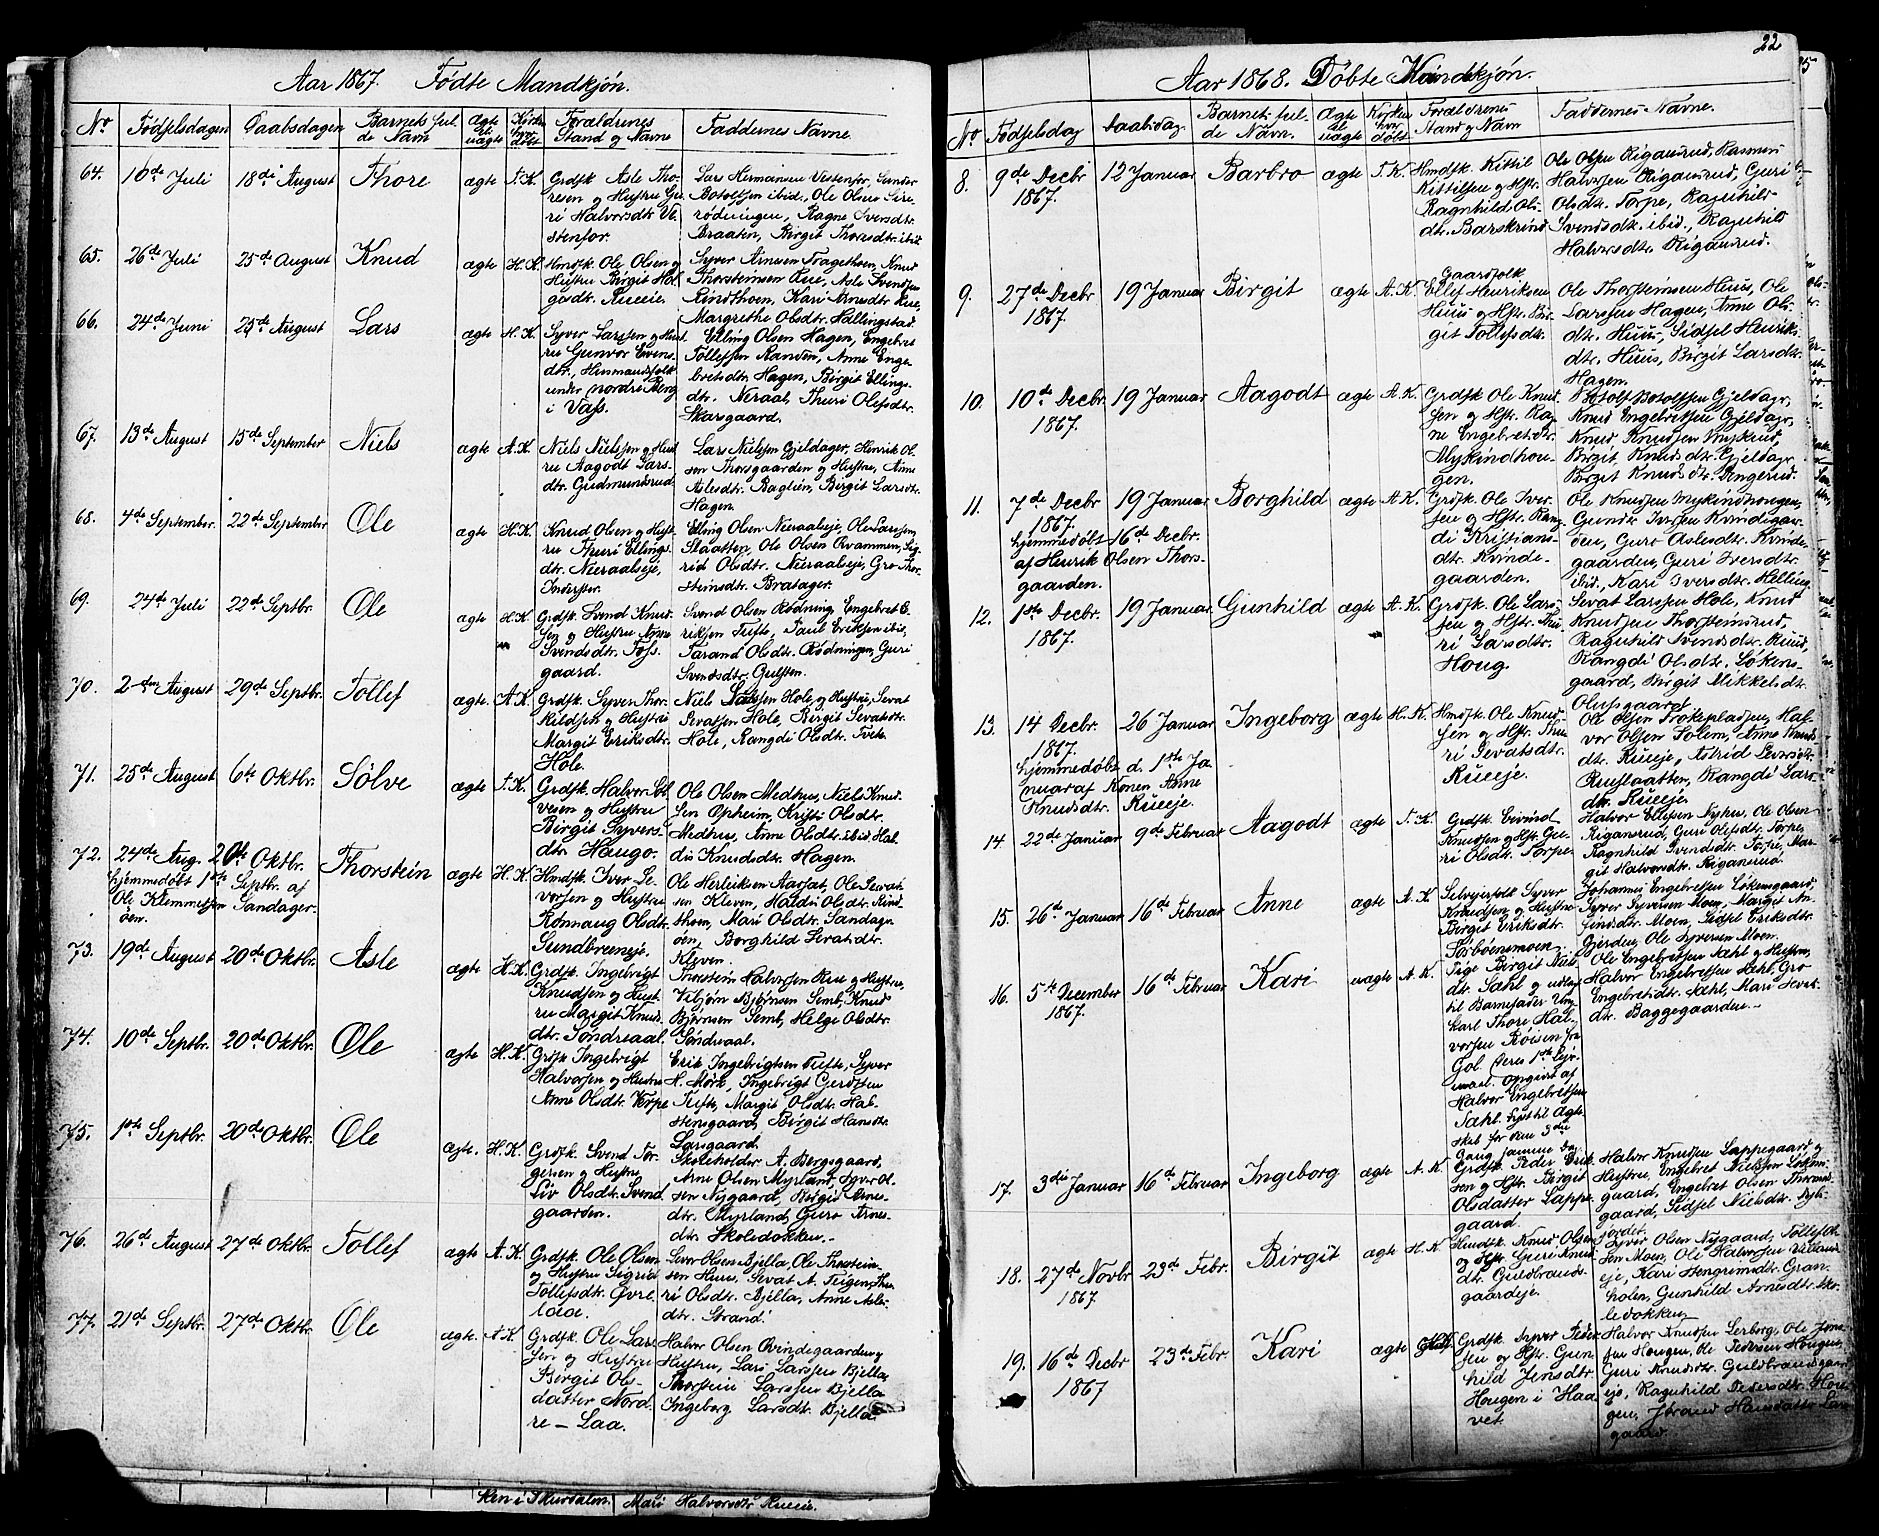 Aar 1867. Fødte Mandkjøn.
No Fødselsdagen Daabsdagen Barnets ful- de Navn Ægte el. uægte Kirken hvor døbt Forældrenes Stand og Navne Faddernes Navne
64. 16de Juli 18de August Thore ægte T. K.
Grdfk. Asle Tho-
resen og Hustru Gu-
ri Halvorsdtr. Ve-
stenfor.
Lars Hermansen Vestenfor, Sander
Botolfsen ibid., Ole Olsen Sire-
rødningen, Ragne Iversdtr.
Braaten, Birgit Thoresdtr. ibid.
65. 26de Juli 25de August Knud ægte H. K.
Hmdfk. Ole Olsen og
Hustru Birgit Hel-
gesdtr. Rueeie.
Syver Arnesen Tragethoen, Knud
Thorsteinsen Rue, Asle Svendsen
Lindthoen, Kari Arnesdtr. Rue,
Margrethe Olsdtr. Hallingstad.
66. 24de Juni 25de August Lars ægte H. K.
Syver Larssen og Hust-
ru Gunvor Evens-
dtr., Husmandsfolk
under nordre Berg
i Vats.
Elling Olsen Hagen, Engebret
Tollefsen Randen, Anne Enge-
bretsdtr. Hagen, Birgit Ellings-
dtr. Neraal, Thuri Olefsdtr.
Skarsgaard.
67. 13de August 15de September Niels ægte A. K.
Niels Nielssen og Hust-
ru Aagodt Lars-
dtr. Gudmundsrud.
Lars Nielssen Gjeldager, Henrik Ol-
sen Thorsgaarden og Hustru, Anne
Aslesdtr. Baglien, Birgit Larsdtr.
Hagen.
68. 4de September. 22de September Ole ægte H. K.
Knud Olsen og Hust-
ru Thuri Ellings-
dtr. Nieraalseje,
Inderster.
Elling Olsen Nieraalseje, Ole Larssen
Slaatten, Ole Olsen Kvammen, Sig-
rid Olsdtr. Nieraalseje, Gro Thor-
steinsdtr. Bratager.
69. 24de Juli 22de Septbr. Ole ægte H. K.
Grdfk. Svend Knud-
sen og Hustru Arne
Svendsdtr. Toss-
gaard.
Svend Olsen Rødning, Engebret E-
riksen Tufte, Paul Eriksen ibid,
Tarand Olsdtr. Rødningen, Guri
Svendsdtr. Gulsten.
70. 2den August 29de Septbr. Tollef ægte. A. K.
Grdfk. Syver Thor-
kildsen og Hustru
Margit Eriksdtr.
Hole.
Niels Larssen Hole og Hustru, Sevat
Sevatsen Hole, Birgit Sevatsdtr.
Hole, Rangdi Olsdtr. Tvete.
71. 25de August 6te Oktbr. Sölve ægte T. K.
Grdfk. Halvor Sl-
vesen og Hustru
Birgit Syvers-
dtr. Haugo.
Ole Olsen Medhus, Niels Knud-
sen Opheim, Kristi Olsdtr.
Medhus, Anne Olsdtr. ibid. Hal-
dis Knudsdtr. Hagen.
72. 24de Aug. 20de Oktbr. Thorstein ægte H. K.
hjemmedøbt 1ste Septbr. af
Ole Klemmetsen Sandager-
öen.
Hmdfk. Iver Se-
vatsen og Hustru
Rønnaug Olsdtr.
Sundbreeneje.
Ole Herbriksen Aarsat, Ole Sevat-
sen Kleven, Haldis Olsdtr. Rind-
thoen, Mari Olsdtr. Sandager-
öen, Borghild Sevatsdtr.
Kleven.
73. 19de August 20de Oktbr. Asle ægte H. K.
Grdfk. Ingebrigt
Knudsen og Hust-
ru Margit Knuds-
dtr. Söndreaal.
Thorstein Halvorsen Rue og Hustru,
Vibjørn Bjørnsen Semb, Knud
Bjørnsen Semb, Helge Olsdtr.
Söndreaal.
74. 10de Septbr. 20de Oktbr. Ole ægte H. K.
Grdfk. Ingebrigt
Halvorsen og Hustru
Anne Olsdtr. Torpe
Erik Ingebrigtsen Tufte, Syver
H. Mörk, Ingebrigt Gertsen
Tufte, Margit Olsdtr. Hal-
stensgaard, Birgit Hansdtr.
Larsgaard.
75. 1ste Septbr. 20de Oktbr. Ole ægte. H. K.
Grdfk. Svend Tor-
gersen og Hustru
Liv Olsdtr. Svend-
gaarden.
Skoleholder A. Bergsgaard,
Arne Olsen Myrland, Syver Ol-
sen Nygaard, Birgit Arnes-
dtr. Myrland, Guro Arnes-
dtr. Skoledokken.
76. 26de August 27de Oktbr. Tollef ægte A. K.
Grdfk. Ole Olsen
og Hustru Sigrid
Tollefsdtr. Øvre-
laae.
Sever Olsen Bjella, Ole Thorstein-
sen Huus, Sevat A. Teigen, Thu-
ri Olsdtr. Bjella, Anne Asle-
dtr. Strand.
77. 21de Septbr. 27de Oktbr. Ole ægte. A. K.
Grdfk. Ole Lars-
sen og Hustru
Birgit Ols-
datter Nord-
re - Laa.
Halvor Olsen Qvindegaarden og
Hustru, Lars Larssen Bjella,
Thorstein Larssen Bjella
Ingeborg Larsdtr. Bjella
Mari Halvorsdtr. Rueeie.
22
Aar 1868. Døbte Kvindekjøn.
No Fødselsdag Daabsdag Barnets ful- de Navn. Ægte el. uægte Kirken hvor døbt Forældrenes Stand og Navn Faddernes Navne.
8. 9de Decbr 1867. 12 Januar Barbro ægte T. K.
Hmdfk. Kittil
Kittilsen og Hstr.
Ragnhild Ols-
dtr. Barskrind
Ole Olsen Rigansrud, Rasmus
Halvorsen Rigansrud, Guri
Olsdtr. Torpe, Ragnhild
Svendsdtr. ibid., Ragnhild
Halvorsdtr. Rigansrud.
9. 27de Decbr 1867. 19 Januar Birgit ægte A. K.
Gaardfolk
Ellef Henriksen
Huus og Hstr. Bir-
git Tollefsdtr.
Ole Thorsteinsen Huus, Ole
Larssen Hagen, Anne Ols-
dtr. Huus, Sidsel Henriks-
dtr. Huus, Birgit Larsdtr.
Hagen.
10. 10de Decbr. 1867. 19 Januar Aagodt ægte A. K.
Grdfk. Ole Knud-
sen og Hstr. Rag-
ne Engebretsdtr.
Mykindhou-
gen.
Botolf Botolfsen Gjeldagr,
Knud Engebretsen Gjeldagr,
Knud Knudsen Mykind,
Birgit Knudsdtr. Gjeldagr
Birgit Knudsdtr. Bengerud.
11. 7de Decbr 1867. 19 Januar Borghild ægte A. K.
hjemmedøbt 16de Decbr.
af Henrik Olsen Thors-
gaarden.
Grdfk. Ole Iver-
sen og Hstr. Ran-
di Kristians-
dtr. Kvinde-
gaarden.
Ole Knudsen Mykindhougen,
Gunder Iversen Kvindegaar-
den, Guro Aslesdtr. Kvinde-
gaarden, Guri Iversdtr.
ibid, Kari Iversdtr. Helling.
12. 1ste Decbr. 1867. 19 Januar Gunhild ægte A. K.
Grdfk. Ole Lars-
sen og Hstr. Thu-
ri Larsdtr.
Houg.
Sevat Larssen Hole, Knud
Knudsen Thorsteinsrud,
Ragnhild Svendsdtr. Ruud,
Rangdi Olsdtr. Løkens-
gaard, Birgit Mikkelsdtr.
Olufsgaard.
13. 14 Decbr. 1867. 26 Januar Ingeborg ægte H. K.
hjemmedøbt d. 1ste Ja-
nuar af Konen Anne
Knudsdtr. Rueeje.
Hmdfk. Ole Knud-
sen og Hstr. Thu-
ri Sevatsdtr.
Rueeje.
Ole Olsen Trökepladsen, Hal-
vor Olsen Solem, Anne Knuds-
dtr. Rueeje, Astrid Iversdtr.
Ruslaatten, Rangdi Lars-
dtr. Rueeje.
14. 22de Januar 9de Februar Aagodt ægte T. K.
Grdfk. Eivind
Knudsen og Hstr. Gu-
ri Olsdtr. Torpe.
Halvor Ellefsen Nyhus, Ole Olsen
Rigansrud, Guri Olefsdtr. Torpe,
Ragnhild Svendsdtr. Torpe, Mar-
git Halvorsdtr. Rigansrud.
15. 26de Januar 16de Februar Anne ægte A. K.
Selveierfolk Syver
Knudsen og Hustru
Birgit Eriksdtr.
Sörboensmoen.
Johannes Engebretsen Løkensgaard,
Syver Syversen Moen, Margit An-
finsdtr. Moen, Sidsel Eriksdtr.
Gjerden, Ole Syversen Moen.
16. 5te December 1867. 16de Februar Kari uægte A. K.
Pige Birgit Niels-
dtr. Sæhl og udlagt
til Barnefader Ung-
karl Thore Hal-
vorsen Röisen fra
Gol. Deres 1ste Leje-
maal. Opgivet af
Halvor Engebretsen
Sæhl. Lyst til Ægte-
skab for dem 3die
Gang samme Dag
Ole Engebretsen Sæhl og Hustru,
Halvor Engebretsen Sæhl, Gro
Engebretsdtr. Sæhl, Mari Sevats-
dtr. Baggegaarden.
17. 3die Januar 16de Februar Ingeborg ægte A. K.
Grdfk. Peder Erik-
sen og Hstr. Birgit
Olsdatter Lappe-
gaard.
Halvor Knudsen Lappegaard og
Hustru, Engebret Nielssen Løkens-
gaard, Engebret Olsen Thorsen-
gaard, Sidsel Nielsdtr. Nyb-
jordet.
18. 27de Novbr 1867. 23de Febr. Birgit ægte H. K.
Hmdfk. Knud Olsen
og Hstr. Guri Knuds-
dtr. Guldbrands-
gaardeje.
Syver Olsen Nygaard, Tollef Ol-
sen Moen, Ole Halvorsen Villand-
eje, Kari Stengrimsdtr. Gran-
holen, Gunhild Arnesdtr. Sko-
ledokken,
19. 16de Decbr 1867 23de Febr. Kari ægte
Grdfk. Syver Peder-
sen og Hstr. Gun-
hild Jensdtr.
Hougen i Haa-
vet.
Halvor Knudsen Lerberg, Ole Jen-
sen Hougen, Ole Pedersen Hougen,
Guri Knudsdtr. Guldbrandsgaard-
eje, Ragnhild Pedersdtr. Hou-
gen,